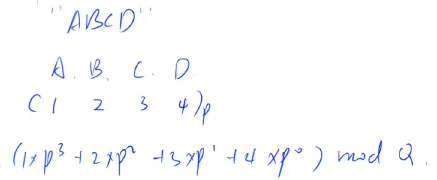 "ABCD"
A. B. C. D
( 1 2 3 4 )p
(1×p³ + 2×p² + 3×p¹ + 4×p⁰) mod Q.